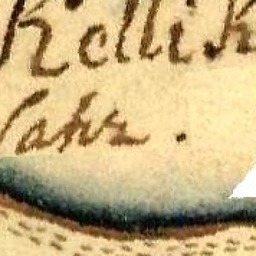 Kelli K
Sahr.